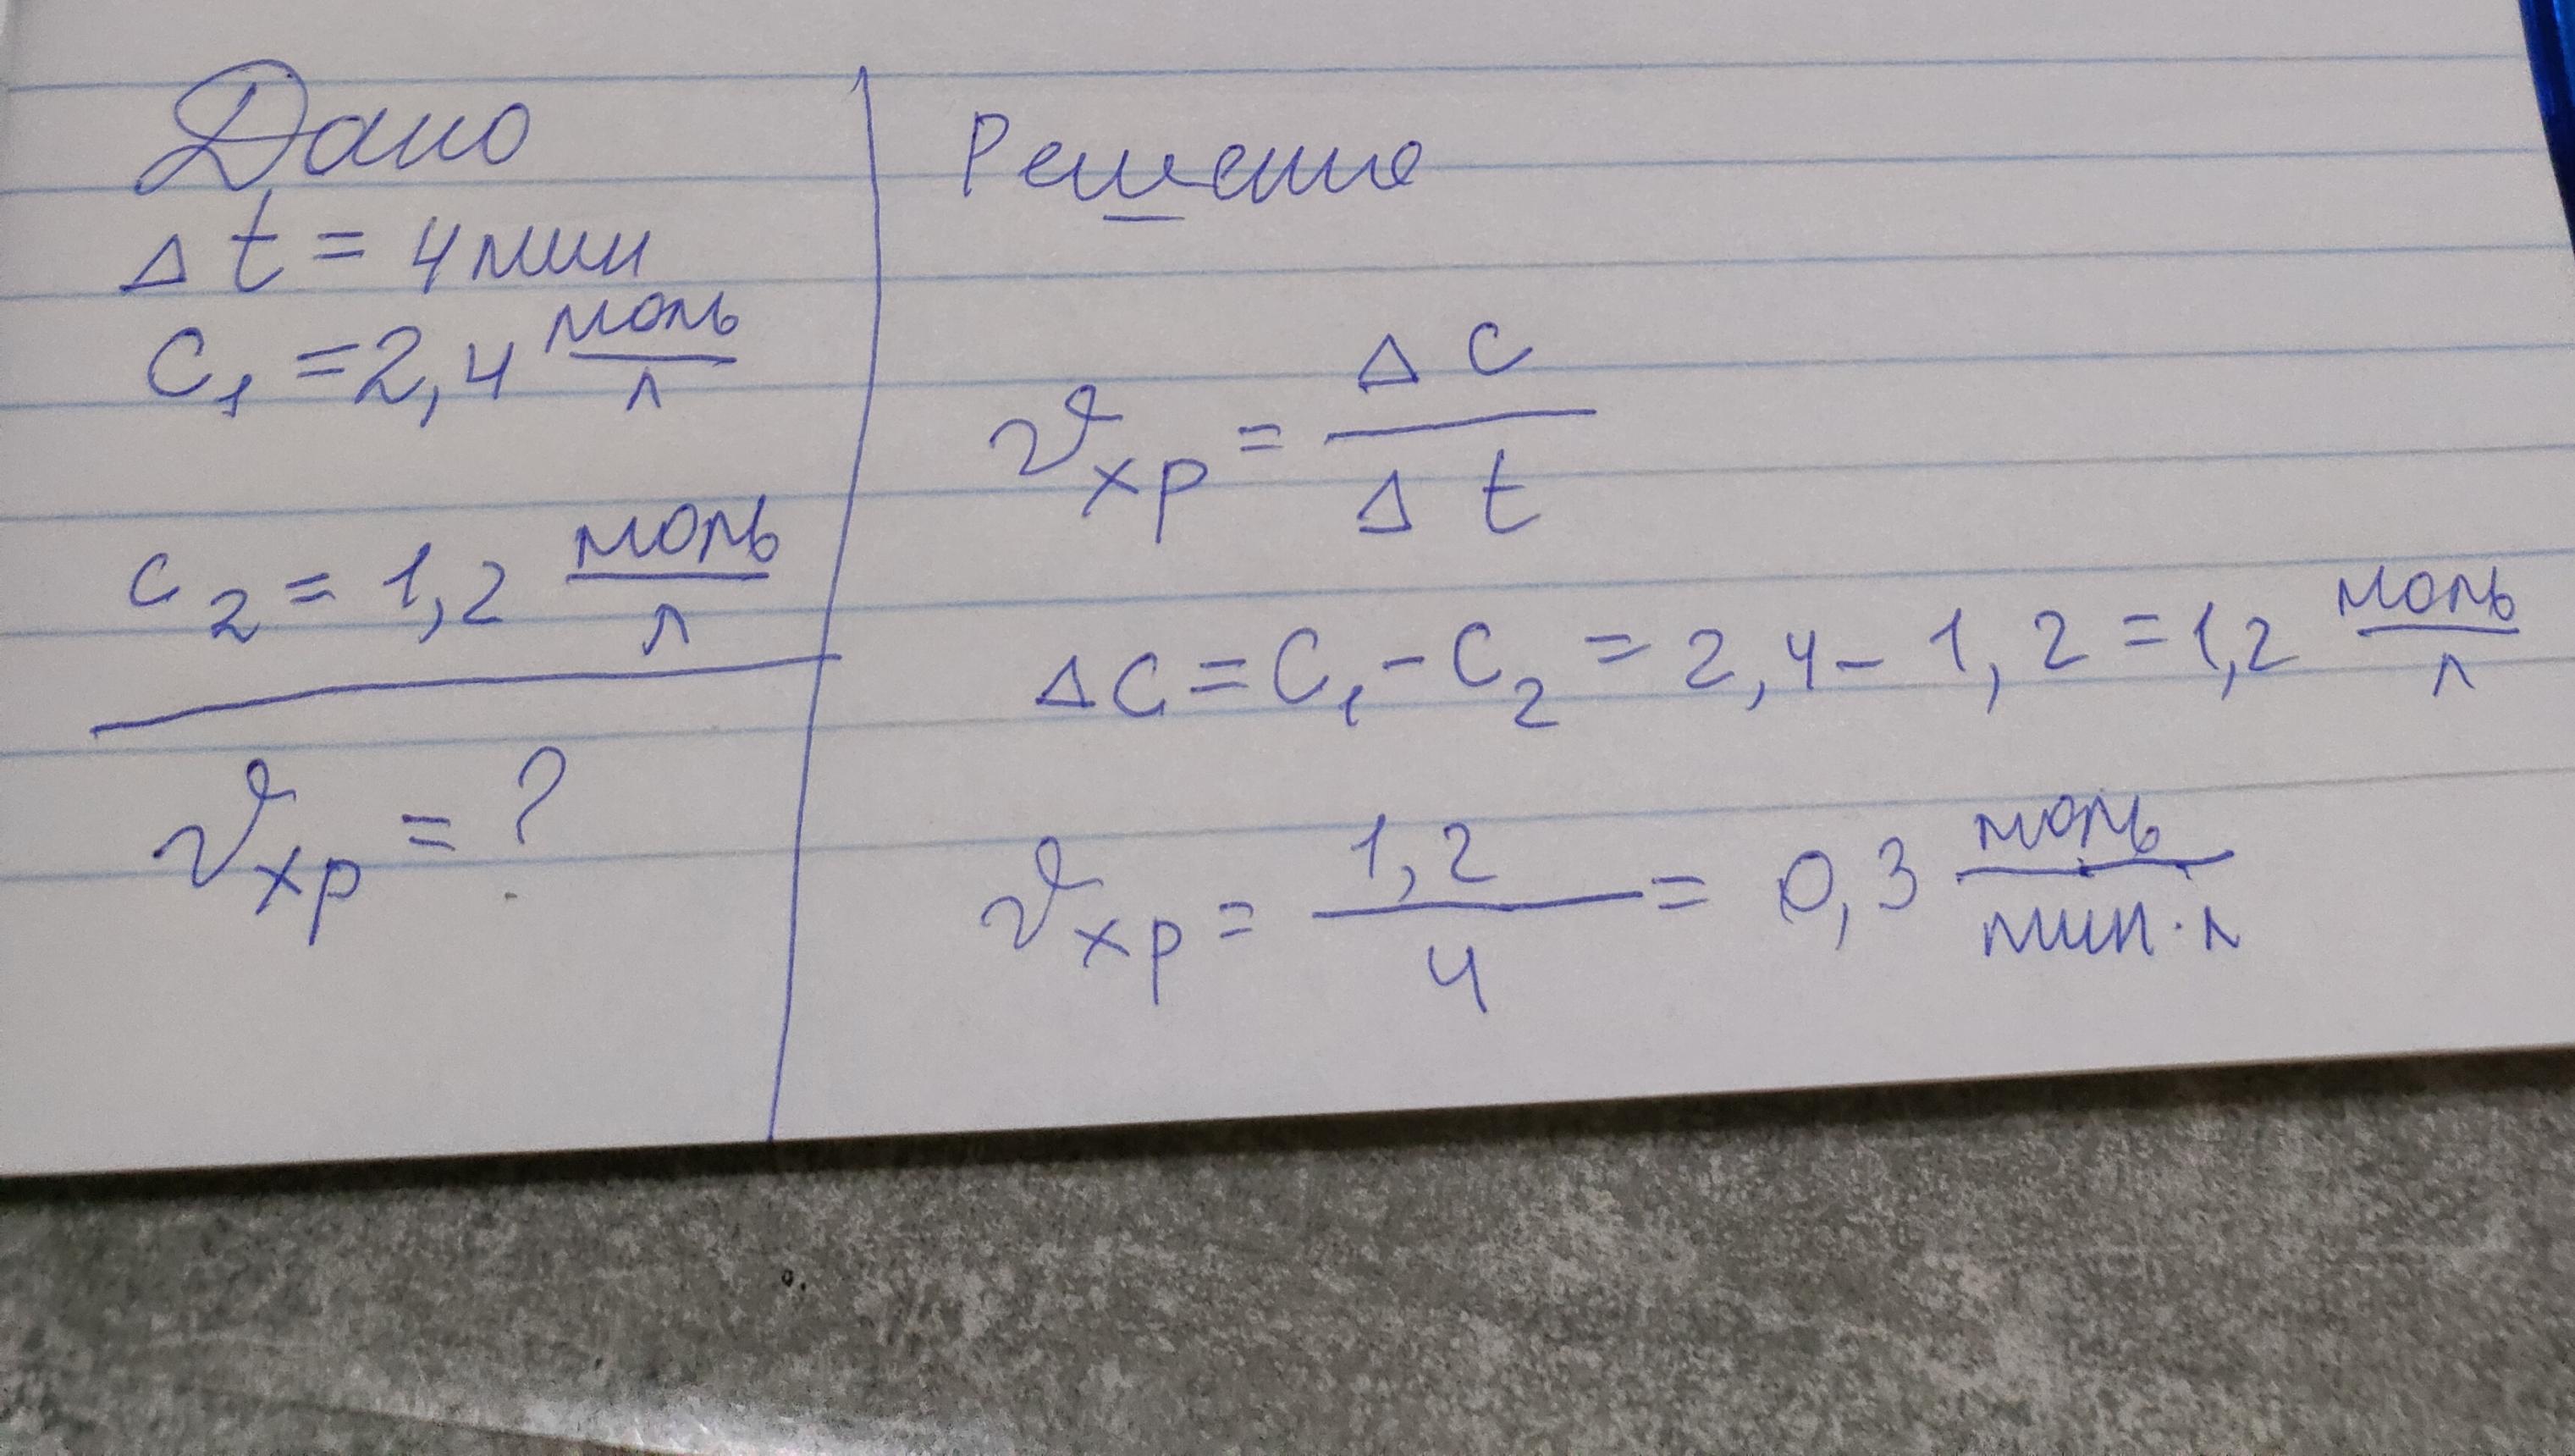 Дано
Δt = 4 мин
C₁ = 2,4 моль/л
c₂ = 1,2 моль/л
υхр = ?
Решение
υхр = Δc/Δt
ΔC = C₁ - C₂ = 2,4 - 1,2 = 1,2 моль/л
υхр = 1,2/4 = 0,3 моль/мин·л